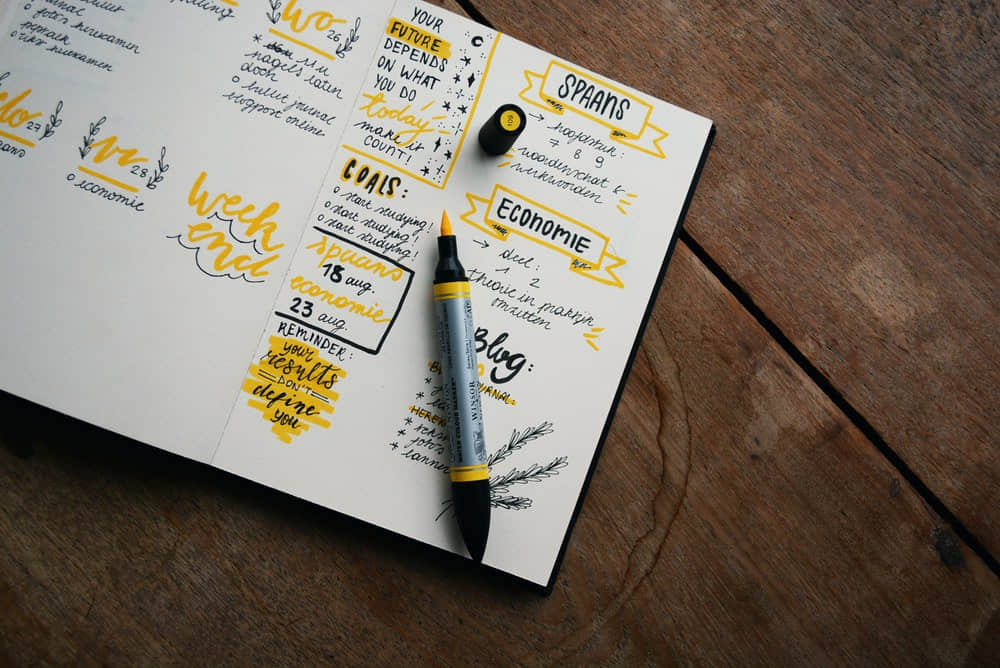 foto's herexamen
herexamen
WO 26
nagels laten
doen
o bullet journal
blogpost online
do 27
vr 28
o economie
week
end
YOUR
FUTURE
DEPENDS
ON WHAT
YOU DO
today
make it
COUNT!
GOALS:
o start studying!
o start studying!
o start studying!
spaans
18 aug.
economie
23 aug.
REMINDER:
your
results
DON'T
define
you
SPAANS
→ hoofdstuk:
7 8 9
woordenschat &
werkwoorden
109
ECONOMIE
→ deel:
1 2
theorie in praktijk
omzetten
Blog:
JOURNAL:
HEREX
WATER COLOUR MARKER
WINSOR